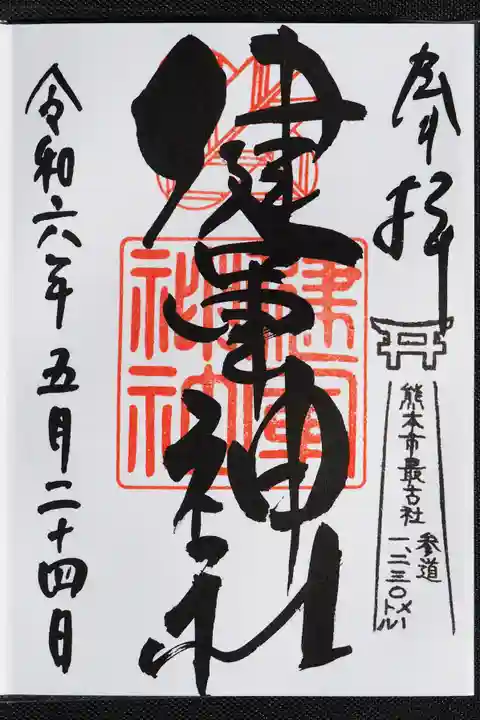 奉拝
熊本市最古社
参道
一、二三〇メートル
健軍神社
健軍神社
令和六年五月二十四日